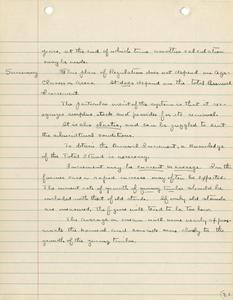 years, at the end of which time another calculation
may be made.
Summary This plan of Regulation does not depend on Age-
Classes or Area. It does depend on the total Annual
Increment.
The particular merit of the system is that it re-
quires surplus stock and provides for its removal.
It is also elastic, and can be juggled to suit
the silvicultural conditions.
To obtain the Annual Increment, a knowledge
of the Total Stand is necessary.
Increment may be current or average. In the
former case a rapid increase may often be effected.
The current rate of growth of young timber should be
included with that of old stands. If only old stands
are measured, the figure will tend to be too low.
The average or mean will more nearly approx-
imate the normal and accords more closely to the
growth of the young timber.